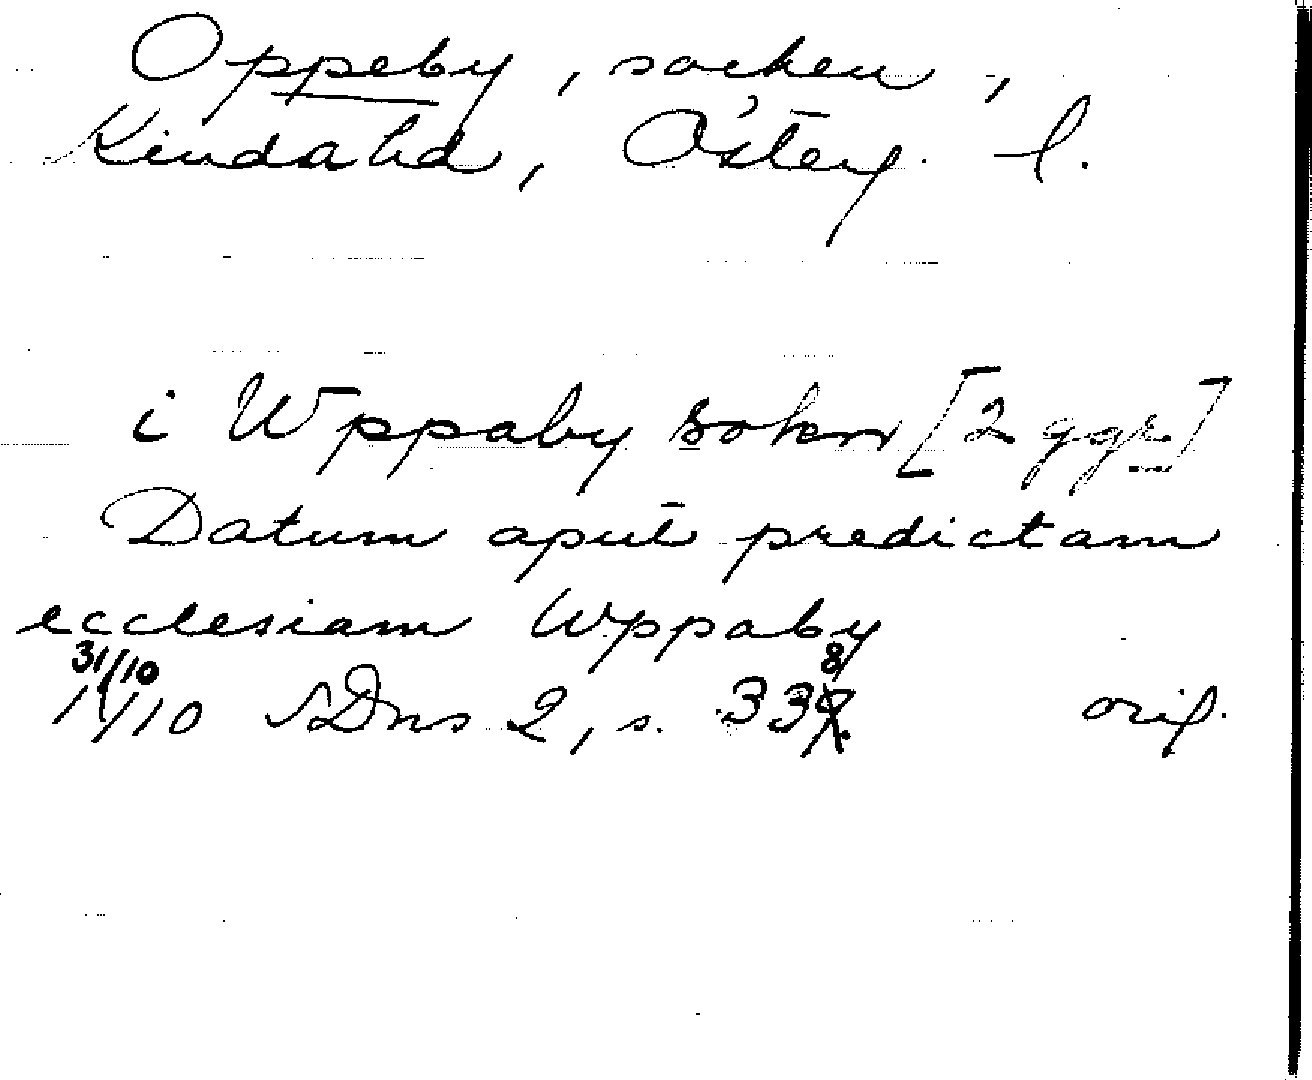 Oppeby, socken,
Kinda hd, Österg. l.
i Wppaby sokn [2 ggr]
Datum aput predictam
ecclesiam Wppaby
31/10 8
11/10 SDns 2, s. 339. orig.